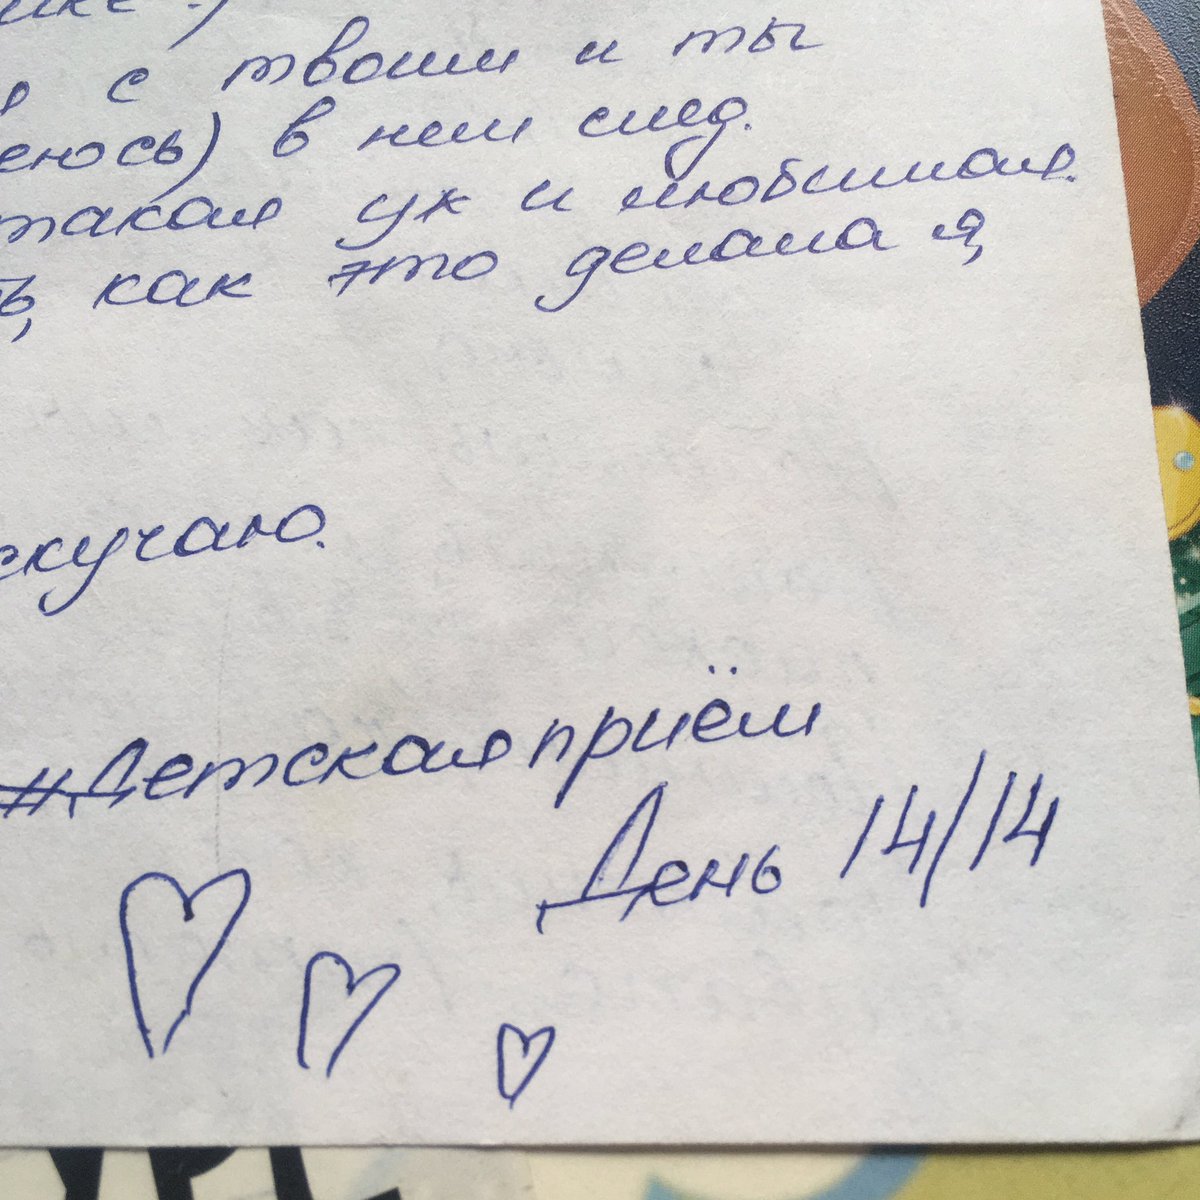 с твоим и ты
еюсь) в нем след.
такая ук и любимая.
ь, как это делала я,
скучаю.
#Детскаяприём
День 14/14